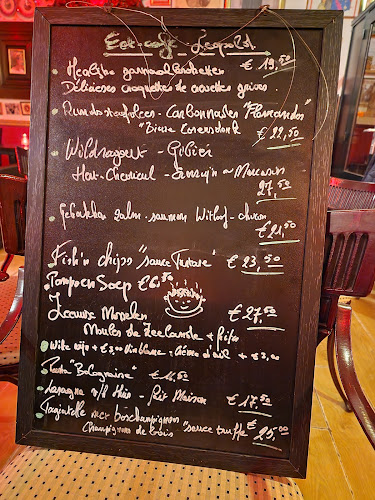 Eet-café Leopold
Heerlijke garnaalkroketten € 19,50
Délicieuses croquettes de crevettes grises
Rundsstoofvlees - Carbonnades "Flamandes"
"Bière
€ 22,50
Wildragout - Gibier
27,50
Gebakken zalm - saumon Witlof - chicon
€ 21,50
Fish'n chips "sauce Tartare" € 23,50
Pompoen Soep €
Zeeuwse Mosselen € 27,50
Moules de Zeelande + frites
Witte wijn + € 3,00 Vin blanc - Crème d'ail + € 3,00
Pasta "Bolognaise" € 16,50
Lasagne v/h Huis - fait Maison € 17,50
Tagliatelle met boschampignon
Champignons de bois "sauce truffe € 25,00